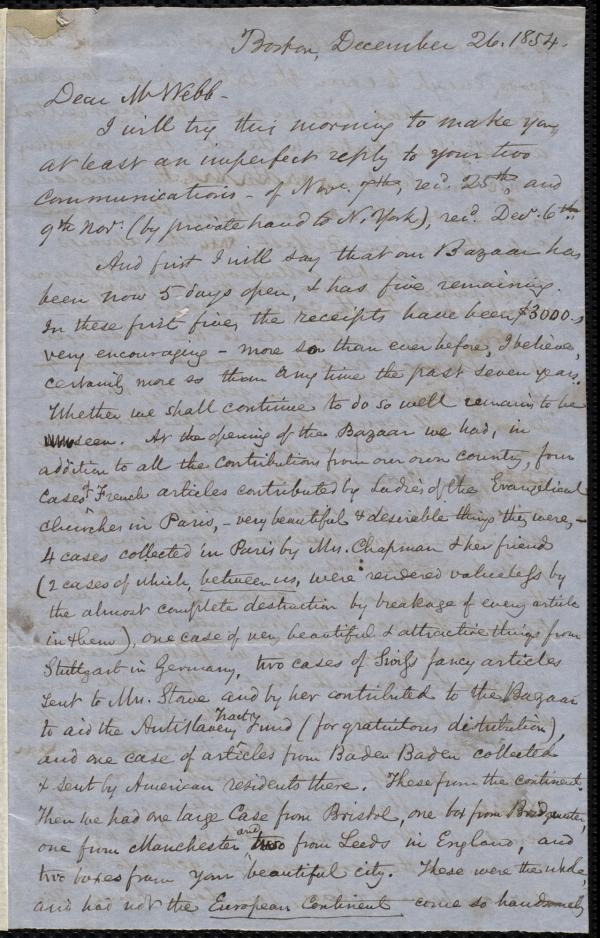 Boston, December 26. 1854.
Dear Mr Webb -
I will try this morning to make you
at least an imperfect reply to your two
communications - of Nov. 7th, recd. 25th, and
9th Nov. (by private hand to N. York), recd. Dec. 6th.
And first I will say that our Bazaar has
been now 5 days open, & has five remaining.
In these first five, the receipts have been $3000.,
very encouraging - more so than ever before, I believe,
certainly more so than any time the past seven years.
Whether we shall continue to do so well remains to be
seen. At the opening of the Bazaar we had, in
addition to all the contributions from our own country, four
cases of French articles contributed by Ladies of the Evangelical
churches in Paris, - very beautiful & desirable things they were, -
4 cases collected in Paris by Mrs. Chapman & her friends
(2 cases of which, between us, were rendered valueless by
the almost complete destruction by breakage of every article
in them), one case of very beautiful & attractive things from
Stuttgart in Germany, two cases of Swiss fancy articles
sent to Mrs. Stowe and by her contributed to the Bazaar
to aid the Antislavery Tract Fund (for gratuitous distribution),
and one case of articles from Baden Baden collected
& sent by American residents there. These from the continent.
Then we had one large Case from Bristol, one box from Bridgwater,
one from Manchester and two from Leeds in England, and
two boxes from your beautiful city. These were the whole,
and had not the European Continent come so handsomely